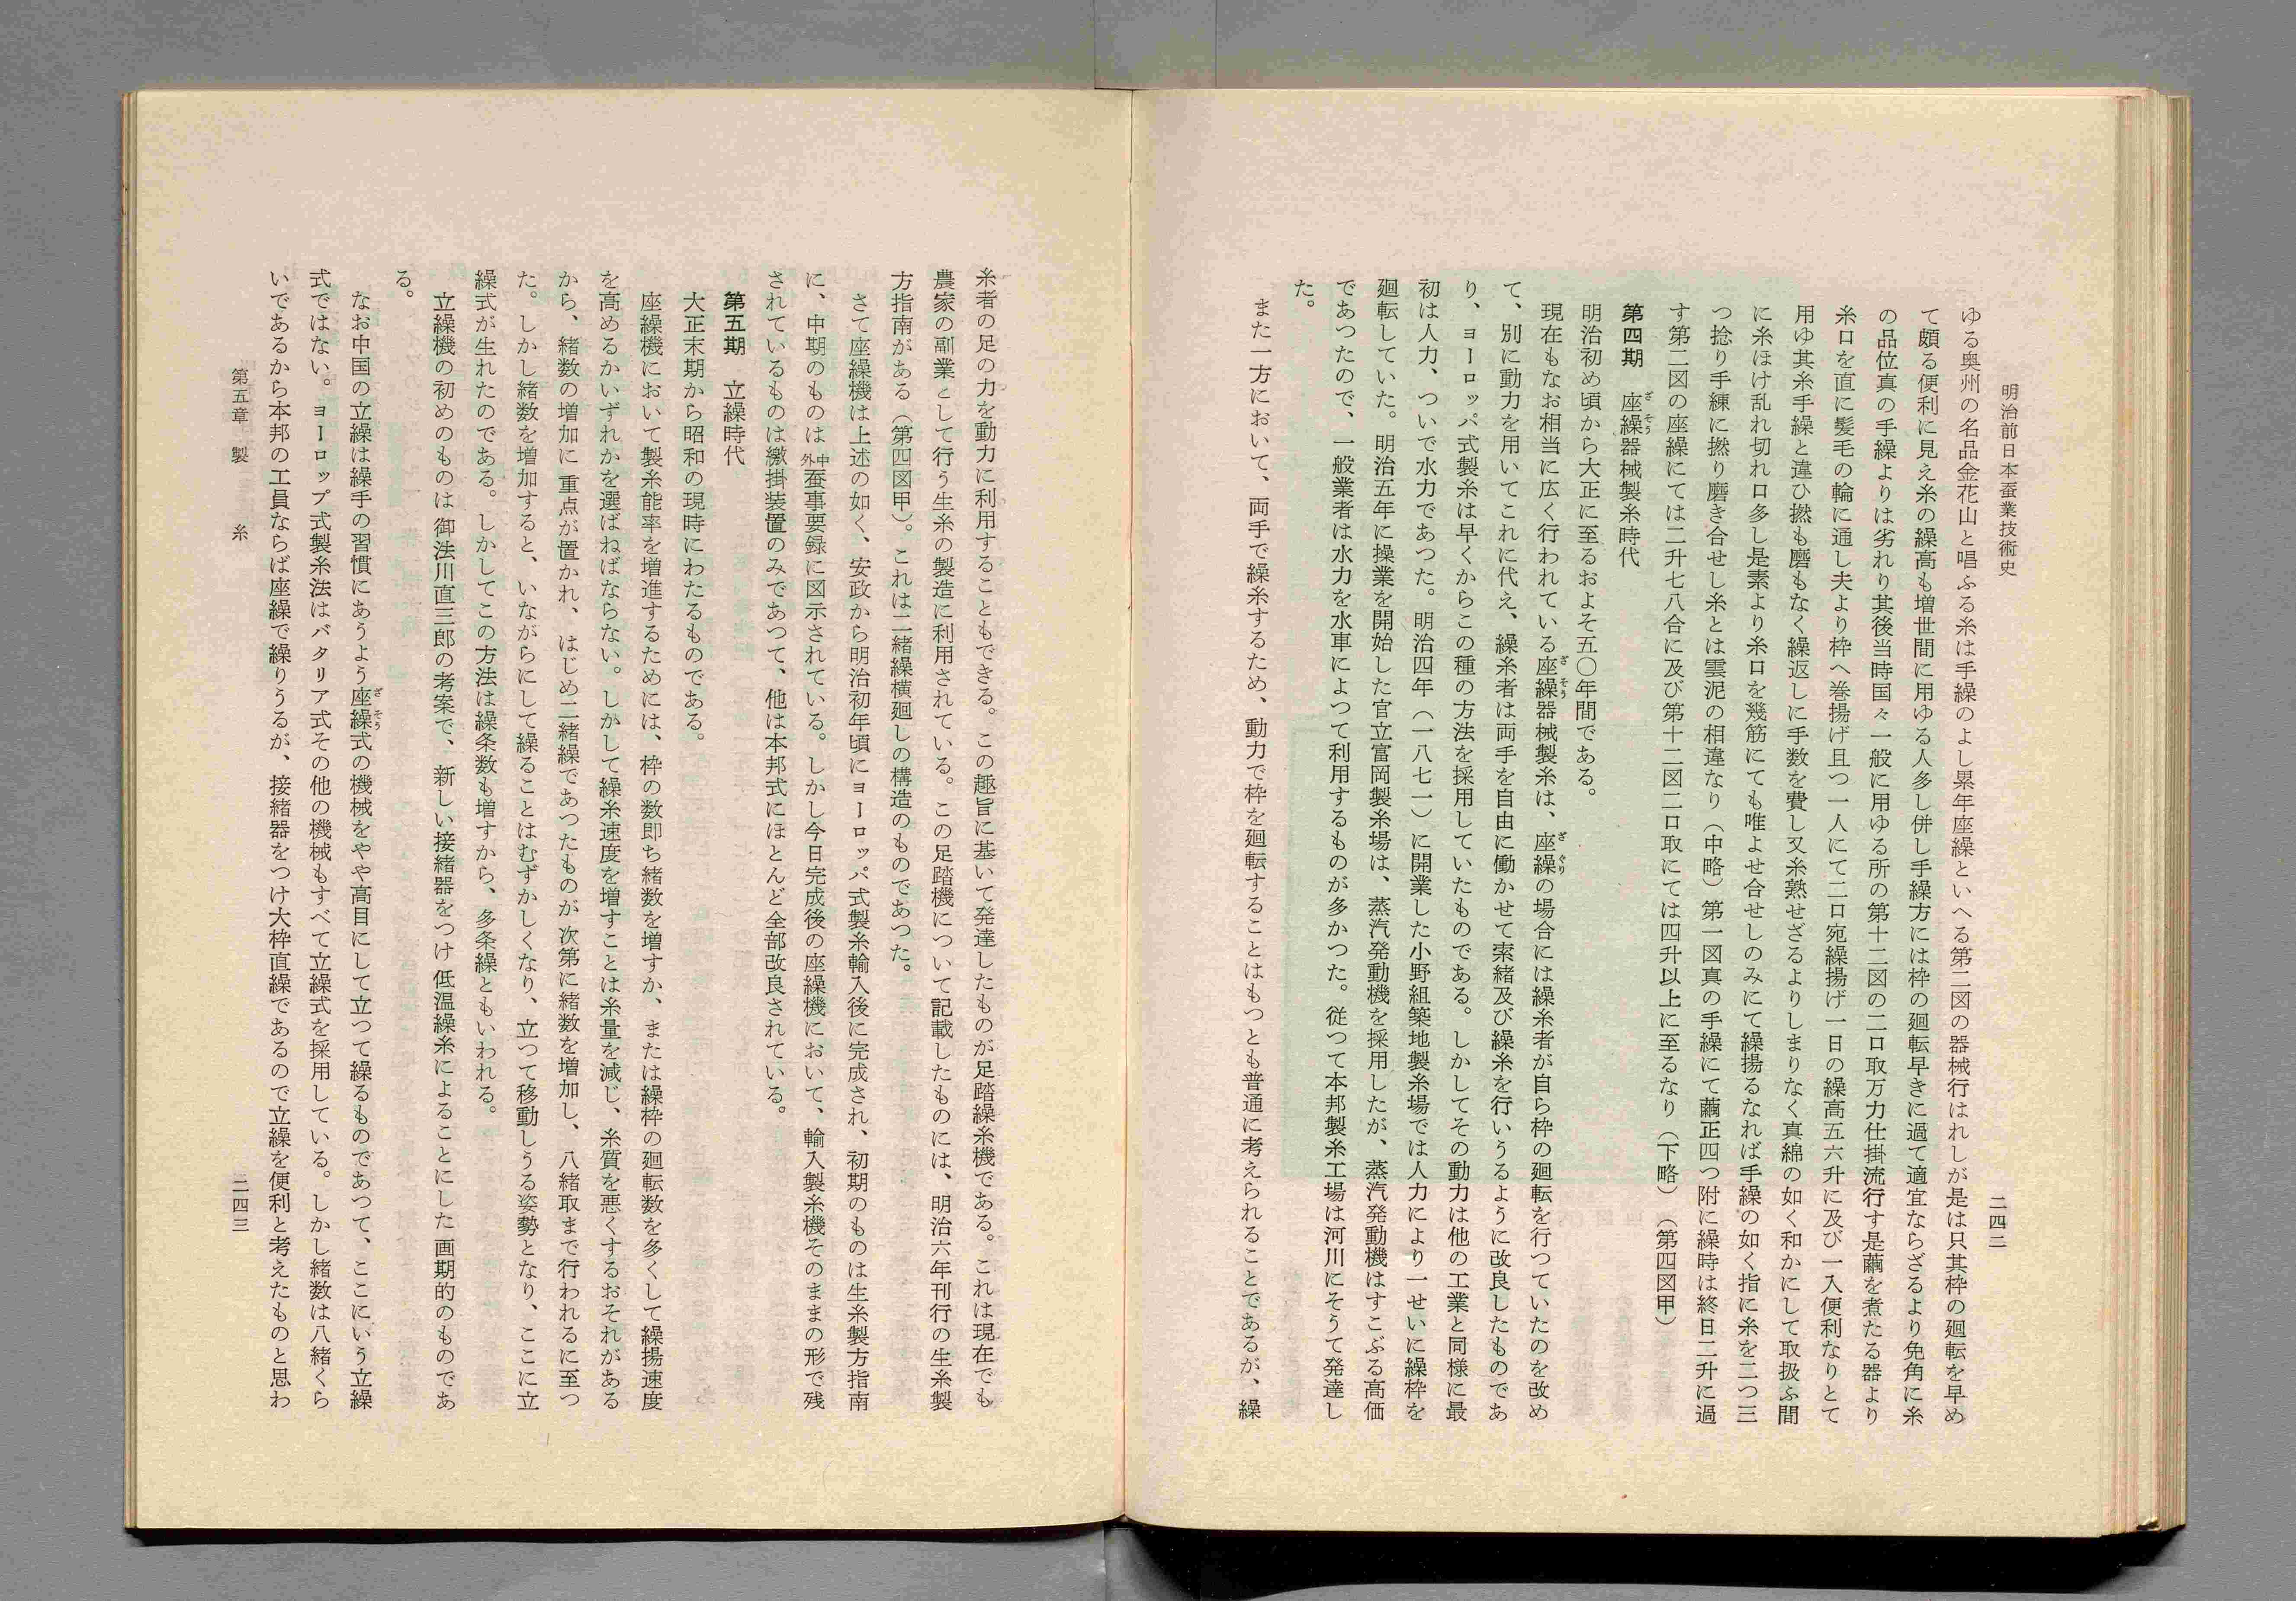 明治前日本蚕業技術史
二四二
ゆる奥州の名品金花山と唱ふる糸は手繰のよし累年座繰といへる第二図の器械行はれしが是は只其枠の廻転を早め
て頗る便利に見え糸の繰高も増世間に用ゆる人多し併し手繰方には枠の廻転早きに過て適宜ならざるより免角に糸
の品位真の手繰よりは劣れり其後当時国々一般に用ゆる所の第十二図の二口取万力仕掛流行す是繭を煮たる器より
糸口を直に髪毛の輪に通し夫より枠へ巻揚げ且つ一人にて二口宛繰揚げ一日の繰高五六升に及び一入便利なりとて
用ゆ其糸手繰と違ひ撚も磨もなく繰返しに手数を費し又糸熟せざるよりしまりなく真綿の如く和かにして取扱ふ間
に糸ほけ乱れ切れ口多し是素より糸口を幾筋にても唯よせ合せしのみにて繰揚るなれば手繰の如く指に糸を二つ三
つ捻り手練に撚り磨き合せし糸とは雲泥の相違なり（中略）第一図真の手繰にて繭正四つ附に繰時は終日二升に過
す第二図の座繰にては二升七八合に及び第十二図二口取にては四升以上に至るなり（下略）（第四図甲）
第四期　座繰器械製糸時代
明治初め頃から大正に至るおよそ五〇年間である。
現在もなお相当に広く行われている座繰器械製糸は、座繰の場合には繰糸者が自ら枠の廻転を行つていたのを改め
て、別に動力を用いてこれに代え、繰糸者は両手を自由に働かせて索緒及び繰糸を行いうるように改良したものであ
り、ヨーロッパ式製糸は早くからこの種の方法を採用していたものである。しかしてその動力は他の工業と同様に最
初は人力、ついで水力であつた。明治四年（一八七一）に開業した小野組築地製糸場では人力により一せいに繰枠を
廻転していた。明治五年に操業を開始した官立富岡製糸場は、蒸汽発動機を採用したが、蒸汽発動機はすこぶる高価
であつたので、一般業者は水力を水車によつて利用するものが多かつた。従つて本邦製糸工場は河川にそうて発達し
た。
また一方において、両手で繰糸するため、動力で枠を廻転することはもつとも普通に考えられることであるが、繰
糸者の足の力を動力に利用することもできる。この趣旨に基いて発達したものが足踏繰糸機である。これは現在でも
農家の副業として行う生糸の製造に利用されている。この足踏機について記載したものには、明治六年刊行の生糸製
方指南がある（第四図甲）。これは二緒繰横廻しの構造のものであつた。
さて座繰機は上述の如く、安政から明治初年頃にヨーロッパ式製糸輸入後に完成され、初期のものは生糸製方指南
に、中期のものは中外蚕事要録に図示されている。しかし今日完成後の座繰機において、輸入製糸機そのままの形で残
されているものは繳掛装置のみであつて、他は本邦式にほとんど全部改良されている。
第五期　立繰時代
大正末期から昭和の現時にわたるものである。
座繰機において製糸能率を増進するためには、枠の数即ち緒数を増すか、または繰枠の廻転数を多くして繰揚速度
を高めるかいずれかを選ばねばならない。しかして繰糸速度を増すことは糸量を減じ、糸質を悪くするおそれがある
から、緒数の増加に重点が置かれ、はじめ二緒繰であつたものが次第に緒数を増加し、八緒取まで行われるに至つ
た。しかし緒数を増加すると、いながらにして繰ることはむずかしくなり、立つて移動しうる姿勢となり、ここに立
繰式が生れたのである。しかしてこの方法は繰条数も増すから、多条繰ともいわれる。
立繰機の初めのものは御法川直三郎の考案で、新しい接緒器をつけ低温繰糸によることにした画期的のものであ
る。
なお中国の立繰は繰手の習慣にあうよう座繰式の機械をやや高目にして立つて繰るものであつて、ここにいう立繰
式ではない。ヨーロップ式製糸法はバタリア式その他の機械もすべて立繰式を採用している。しかし緒数は八緒くら
いであるから本邦の工員ならば座繰で繰りうるが、接緒器をつけ大枠直繰であるので立繰を便利と考えたものと思わ
第五章　製　糸
二四三